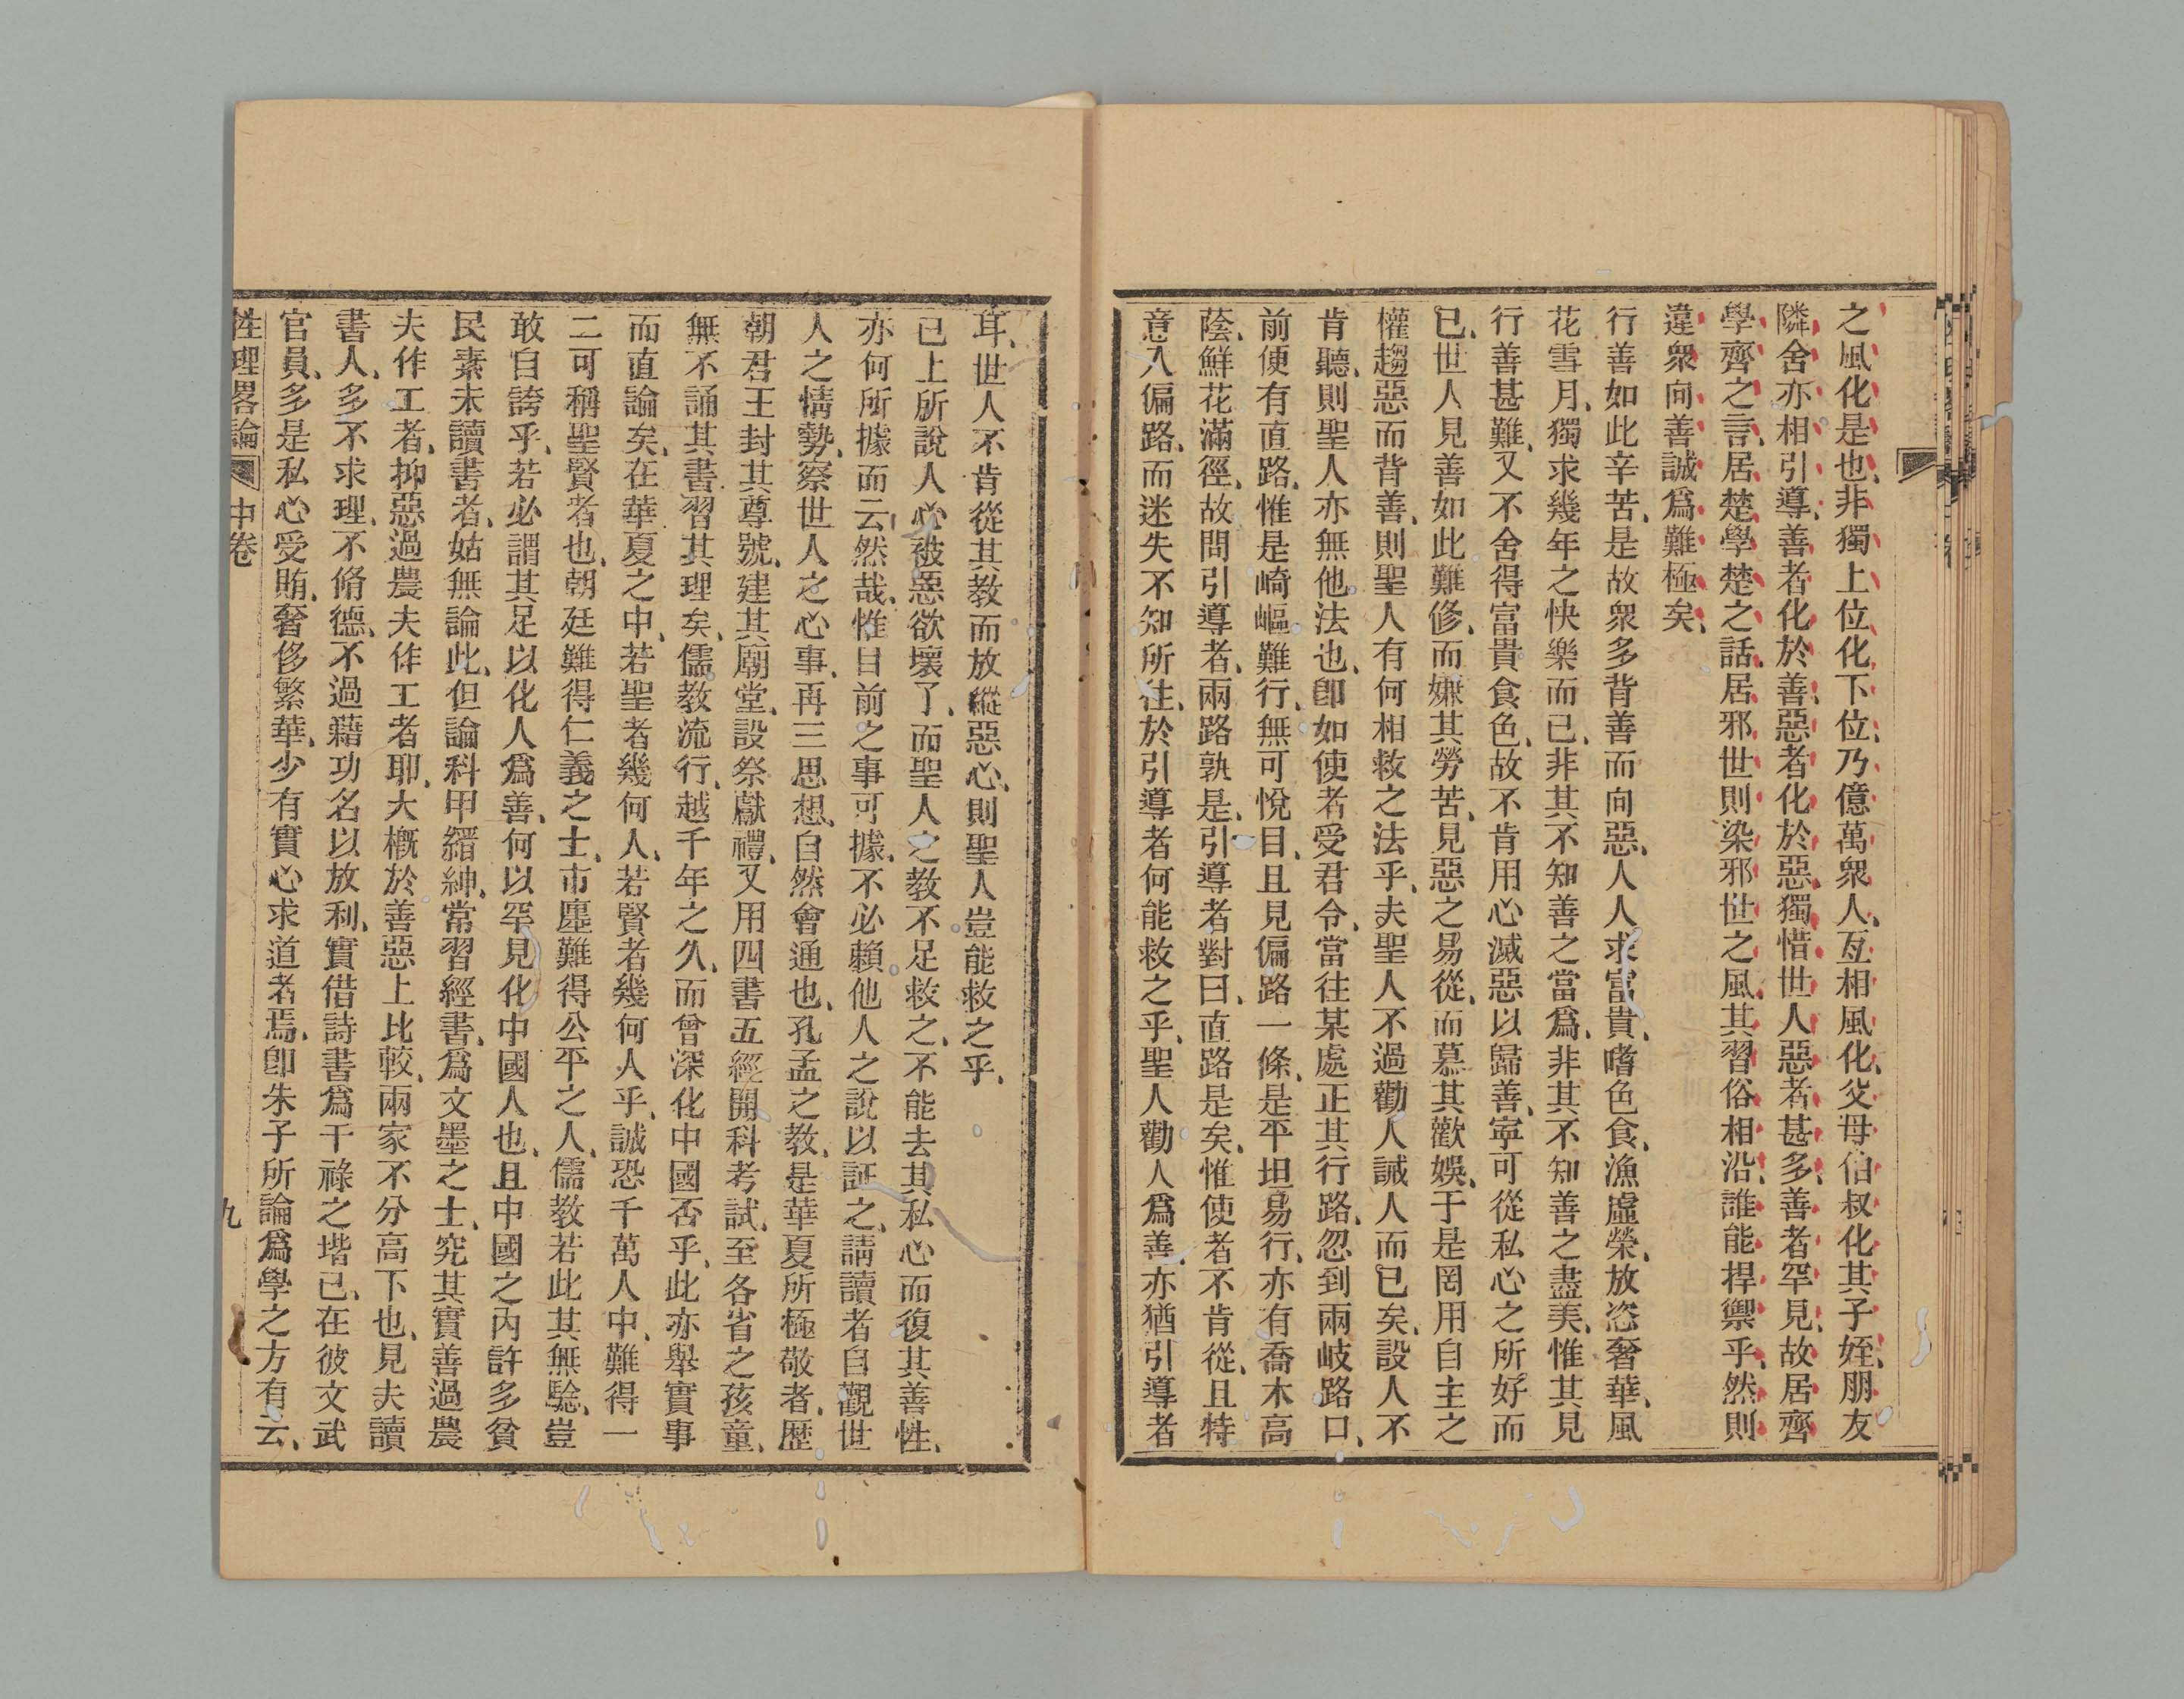 之風化是也、非獨上位化下位、乃億萬衆人、互相風化、父母伯叔化其子姪、朋友
隣舍亦相引導、善者化於善、惡者化於惡、獨惜世人惡者甚多、善者罕見、故居齊
學齊之言、居楚學楚之話、居邪世則染邪世之風、其習俗相沿、誰能捍禦乎、然則
違衆向善、誠爲難極矣、
行善如此辛苦、是故衆多背善而向惡、人人求富貴、嗜色食、漁虛榮、放恣奢華、風
花雪月、獨求幾年之快樂而已、非其不知善之當爲、非其不知善之盡美、惟其見
行善甚難、又不舍得富貴食色、故不肯用心滅惡以歸善、寧可從私心之所好而
已、世人見善如此難修、而嫌其勞苦、見惡之易從、而慕其歡娛、于是罔用自主之
權、趨惡而背善、則聖人有何相救之法乎、夫聖人不過勸人誡人而已矣、設人不
肯聽、則聖人亦無他法也、卽如使者受君令、當往某處正其行路、忽到兩岐路口、
前便有直路、惟是崎嶇難行、無可悅目、且見偏路一條、是平坦易行、亦有喬木高
蔭、鮮花滿徑、故問引導者、兩路孰是、引導者對曰、直路是矣、惟使者不肯從、且特
意入偏路、而迷失不知所往、於引導者何能救之乎、聖人勸人爲善、亦猶引導者
耳、世人不肯從其教而放縱惡心、則聖人豈能救之乎、
已上所說人心被惡欲壞了、而聖人之教不足救之、不能去其私心而復其善性、
亦何所據而云然哉、惟目前之事可據、不必賴他人之說以証之、請讀者自觀世
人之情勢、察世人之心事、再三思想、自然會通也、孔孟之教、是華夏所極敬者、歷
朝君王封其尊號、建其廟堂、設祭獻禮、又用四書五經開科考試、至各省之孩童、
無不誦其書習其理矣、儒教流行、越千年之久、而曾深化中國否乎、此亦舉實事
而直論矣、在華夏之中、若聖者幾何人、若賢者幾何人乎、誠恐千萬人中、難得一
二可稱聖賢者也、朝廷難得仁義之士、市塵難得公平之人、儒教若此其無驗、豈
敢自誇乎、若必謂其足以化人爲善、何以罕見化中國人也、且中國之內許多貧
民、素未讀書者、姑無論此、但論科甲縉紳、常習經書、爲文墨之士、究其實善過農
夫作工者、抑惡過農夫作工者耶、大槪於善惡上比較、兩家不分高下也、見夫讀
書人、多不求理、不脩德、不過藉功名以放利、實借詩書爲干祿之堦已、在彼文武
官員、多是私心受賄、奢侈繁華、少有實心求道者焉、卽朱子所論爲學之方有云、
性理畧論 中卷 九